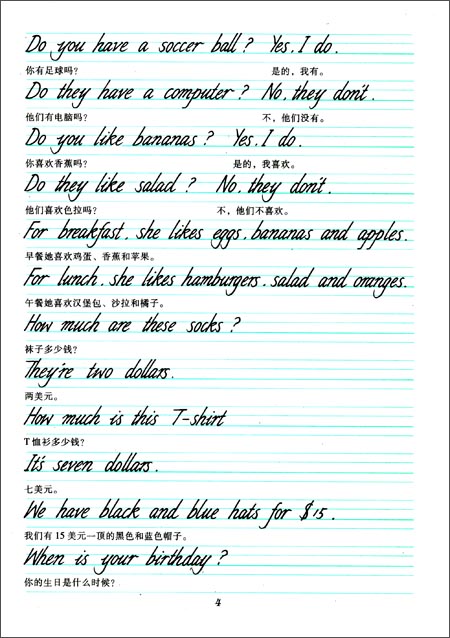 Do you have a soccer ball? Yes, I do.
你有足球吗? 是的，我有。
Do they have a computer? No, they don't.
他们有电脑吗? 不，他们没有。
Do you like bananas? Yes, I do.
你喜欢香蕉吗? 是的，我喜欢。
Do they like salad? No, they don't.
他们喜欢色拉吗? 不，他们不喜欢。
For breakfast, she likes eggs, bananas and apples.
早餐她喜欢鸡蛋、香蕉和苹果。
For lunch, she likes hamburgers, salad and oranges.
午餐她喜欢汉堡包、沙拉和橘子。
How much are these socks?
袜子多少钱?
They're two dollars.
两美元。
How much is this T-shirt
T恤衫多少钱?
It's seven dollars.
七美元。
We have black and blue hats for $15.
我们有15美元一顶的黑色和蓝色帽子。
When is your birthday?
你的生日是什么时候?
4